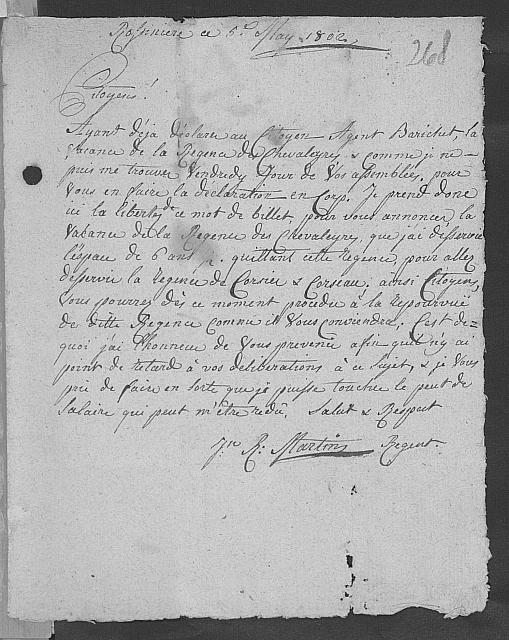 Rossiniere ce 5e. May 1802
268
Citoyens!
Ayant déja déclaré au Citoyen Agent Barichet, la
vacance de la Regence de Chevaleyry, & comme je ne
puis me trouver Vendredy Jour de Vos assemblées, pour
Vous en faire la declaration en Corp. Je prend donc
ici la liberté de ce mot de billet pour vous annoncer la
Vacance de la Regence des Chevaleyry, que j'ai desservie
l'espace de 6 ans, quittant cette Regence, pour allez
desservir la Regence de Corsier & Corseau; ainsi Citoyens,
Vous pourres dès ce moment proceder à la Repourvuë
de dite Regence comme il Vous conviendra. C'est de=
quoi j'ai l'honneur de Vous prevenir afin qu'il n'y ai
point de retard à vos deliberations à ce Sujet, & je Vous
prie de faire en sorte que je puisse toucher le peut de
Salaire qui peut m'être redû. Salut & Respect
R: Martin Regent.